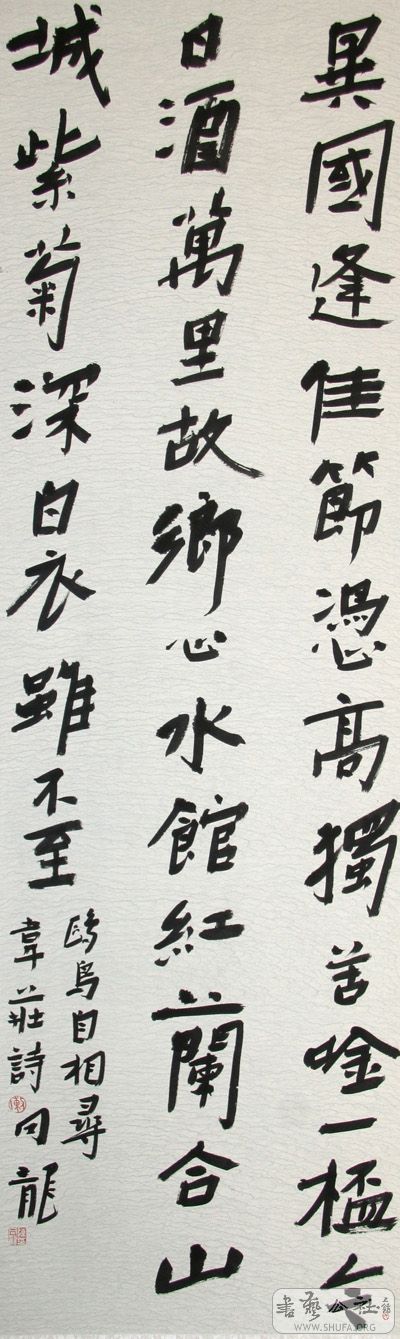 異國逢佳節憑高獨苦唫一桮今
日酒萬里故鄉心水館紅蘭合山
城紫菊深白衣雖不至
鷗鳥自相尋
韋莊詩龍
書藝公社
WWW.SHUFA.ORG